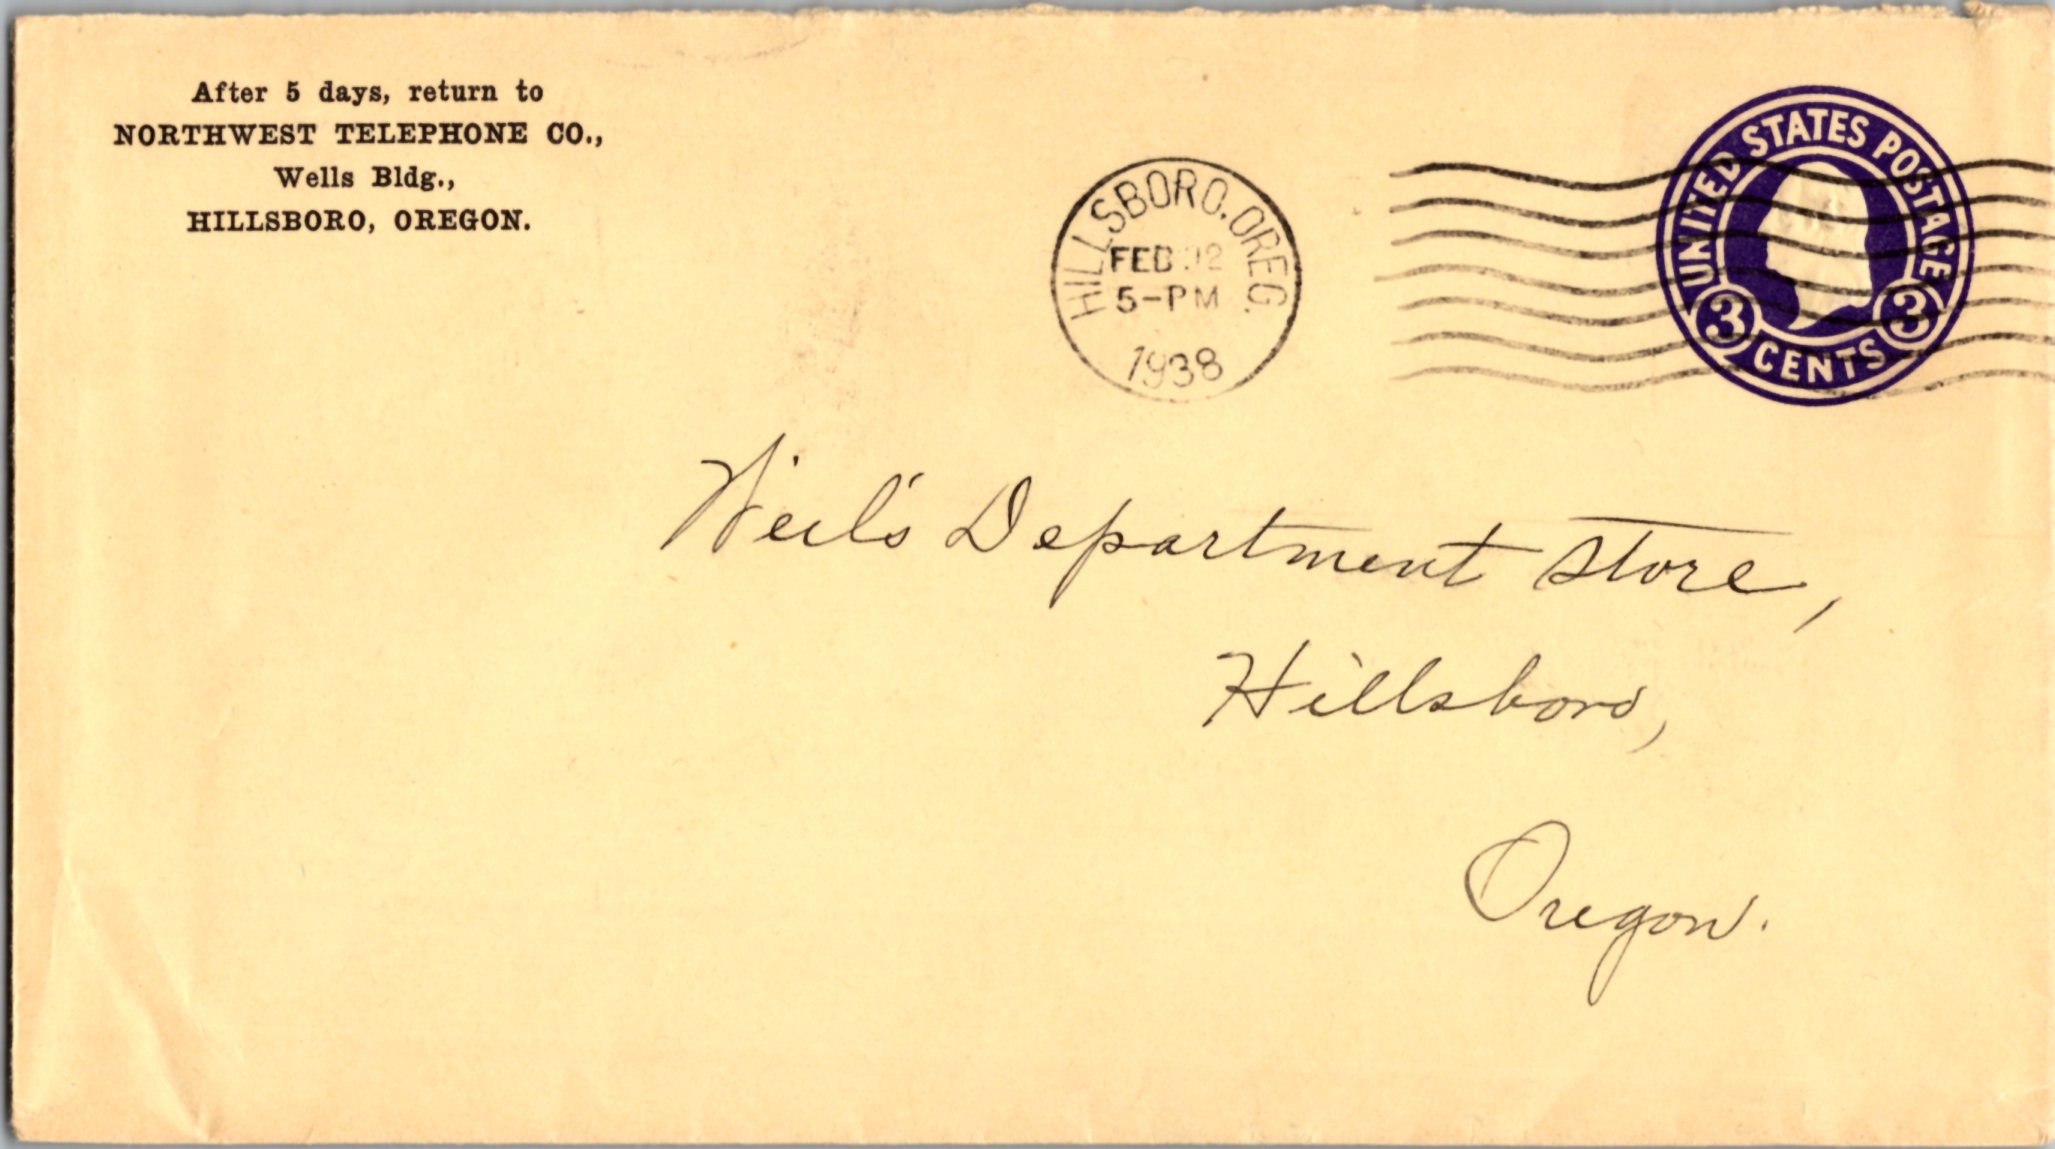 After 5 days, return to
NORTHWEST TELEPHONE CO.,
Wells Bldg.,
HILLSBORO, OREGON.
HILLSBORO, OREG.
FEB
5-PM
1938
UNITED STATES POSTAGE
3 CENTS 3
Weil's Department Store,
Hillsboro,
Oregon.